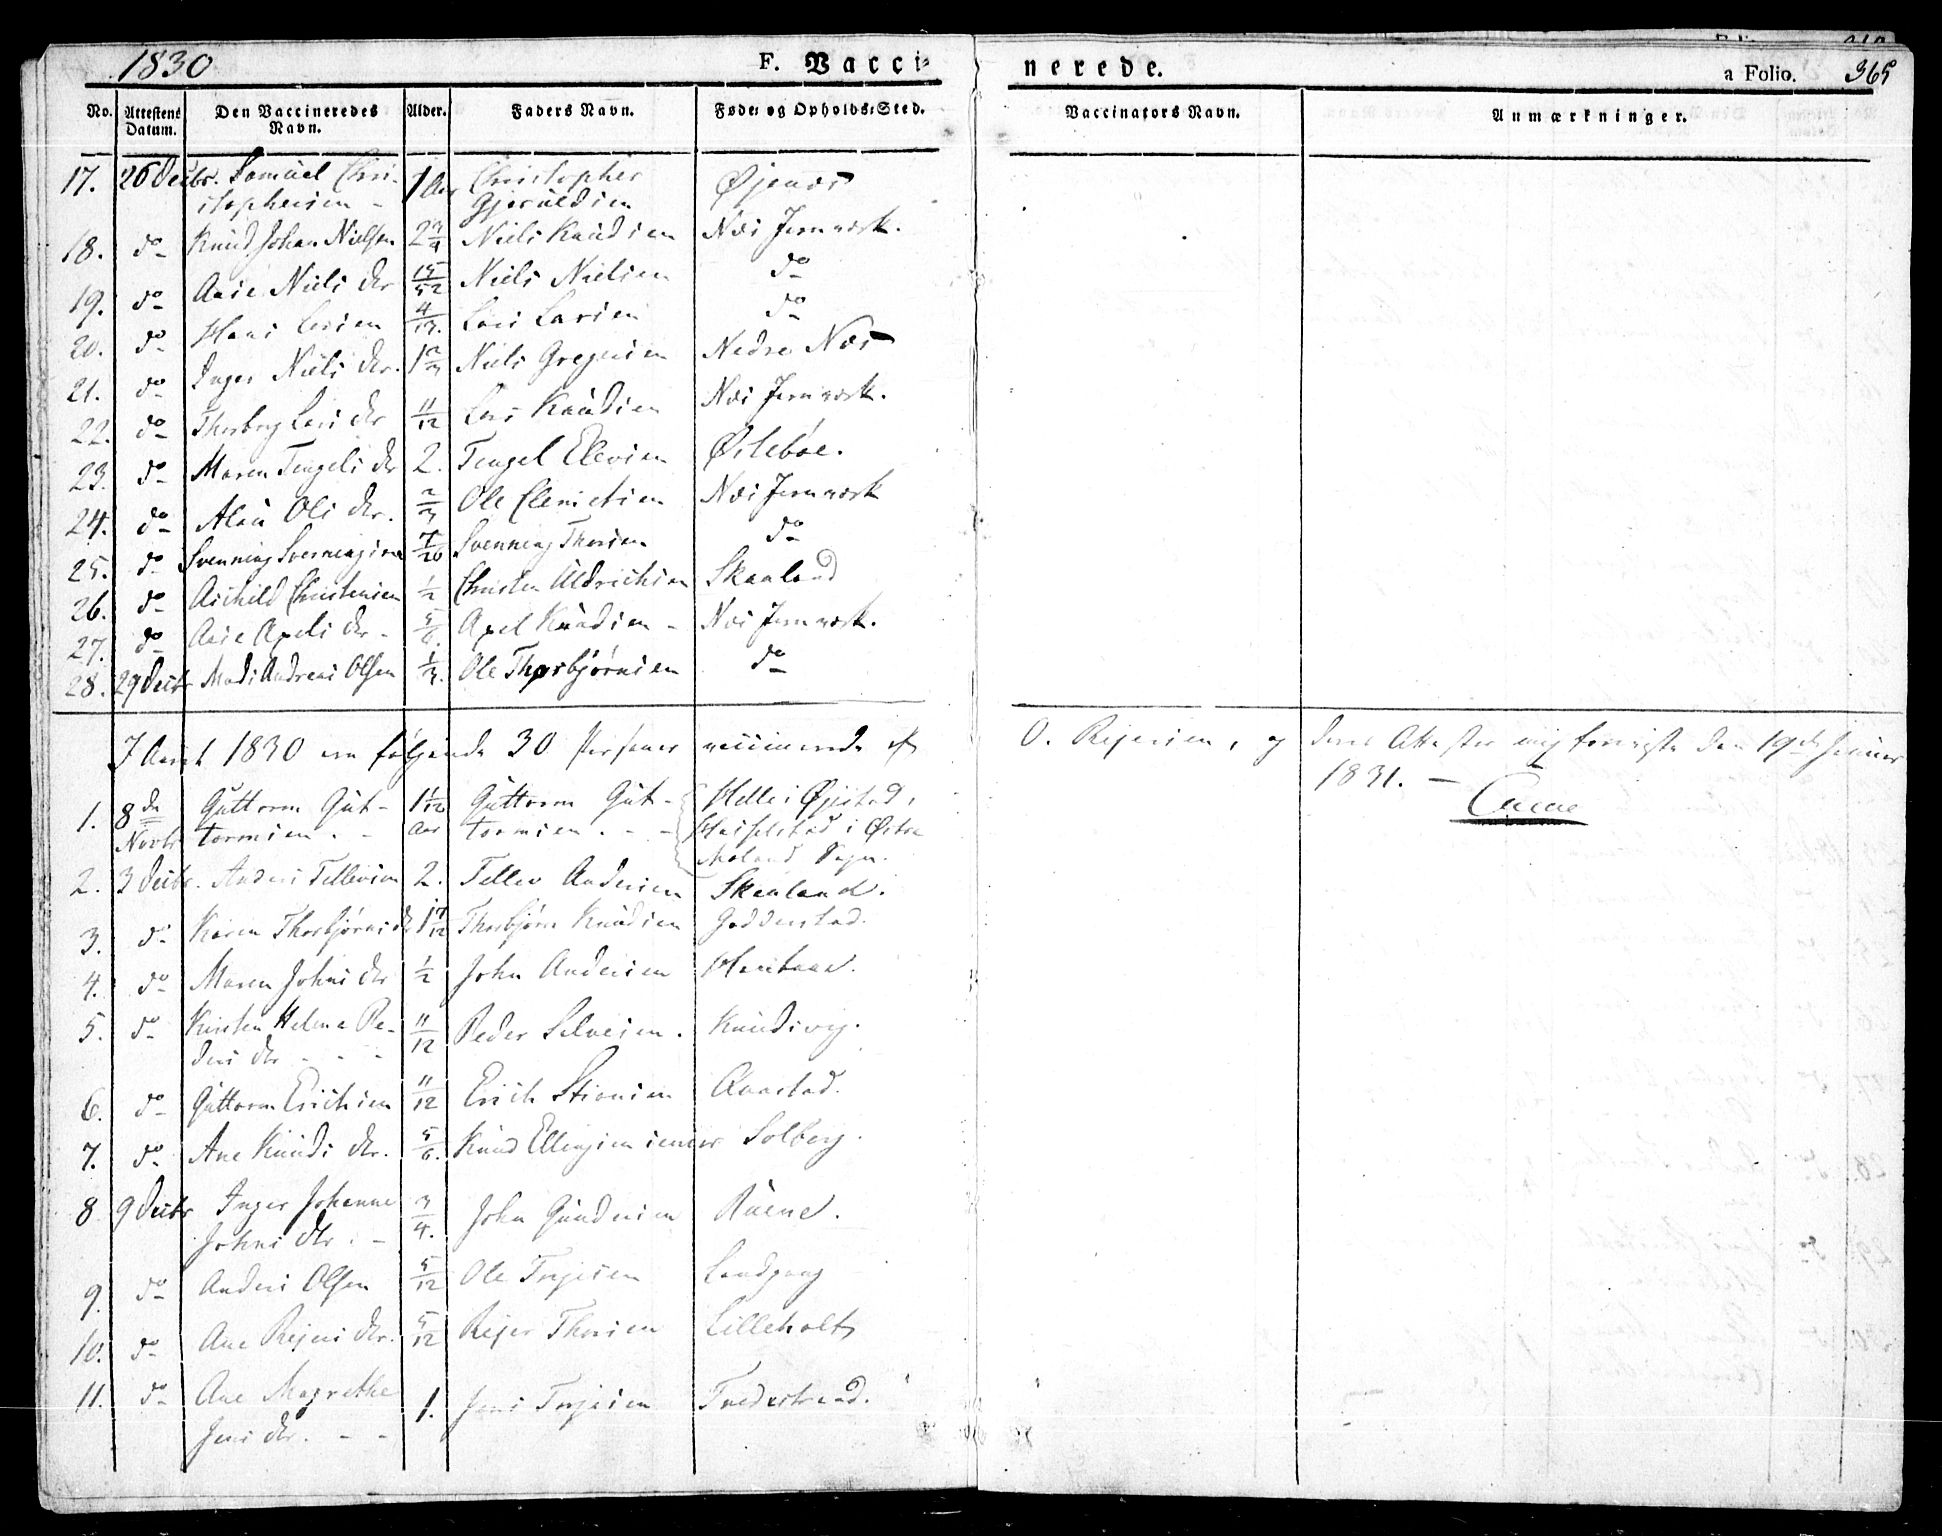 1830 F. Vacci-
nerede. a Folio. 365
No. Attestens Datum. Den Vaccineredes Navn. Alder. Faders Navn. Føde- og Opholds-Sted. Vaccinateurs Navn. Anmærkninger.
17. 26 Decbr. Samuel Chri- 1 Aar Christopher Øjenæs
stophersen - Gjeruldsen
18. do Knud Johan Nielsen 2 3/4 Niels Knudsen Næs Jernværk.
19. do Aase Niels dtr 15/52 Niels Nielsen do
20. do Hans Larsen Lars Larsen do
21. do Inger Niels dtr. 1 2/3 Niels Gregersen Nedre Næs
22. do Thorborg Lars dtr 11/12 Lars Knudsen Næs Jernværk.
23. do Maren Tengels dtr 2. Tengel Elevsen Østebøe.
24. do Ols dtr. 2/3 Ole Clemetsen Næs Jernværk
25. do Svenning Svenningsen 7/20 Svenning Thorsen do
26. do Aschild Christensen 1/2 Christen Uldrichsen Skaaland
27. do Aase Axels dtr - 5/6. Axel Knudsen - Næs Jernværk.
28. 29 Decbr Mads Andreas Olsen 1/3. Ole Thorbjørnsen do
I Aaret 1830 ere følgende 30 Personer vaccinerede af O. Reiersen, og deres Attester mig foreviste den 19de Januar
1831. -
1. 8de Guttorm Gut- 1 1/12 Guttorm Gut- Helle i Øjestad,
Novbr tormsen. - Aar tormsen. - - i Østre
Moland Sogn.
2. 3 Decbr. Anders Tellevsen 2. Tellev Andersen Skaaland.
3. do Karen Thorbjørns dtr 1 7/12 Thorbjørn Knudsen Goderstad.
4. do Maren Johns dtr 1/2 John Andersen
5. do Kirsten Helene Pe- 11/12 Peder Selvesen. Knudsvig.
ders dtr - - -
6. do Guttorm Erichsen 11/12 Erich Stiansen Qvastad.
7. do Ane Knuds dtr. 5/6. Knud Ellingsen senior Solberg.
8 9 Decbr Inger Johanne 3/4. John Gundersen
Johns dtr. -
9. do Anders Olsen 5/12 Ole Terjesen Landgang
10. do Ane Rejers dtr. 5/12 Rejer Thorsen Lilleholt
11. do Ane Magrethe 1. Jens Terjesen Tvedestrand.
Jens dtr. - -